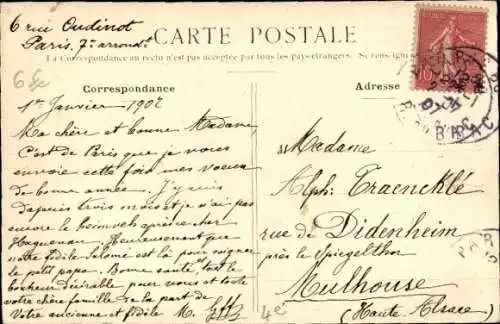 6 rue Oudinot
Paris. 7e arrondt
CARTE POSTALE
La Correspondance au recto n'est pas acceptée par tous les pays étrangers. Se rens
Correspondance
Adresse
1er Janvier 1907
Ma chère et bonne Madame,
C'est de Paris que je vous
envoie cette fois mes voeux
de bonne année. J'y suis
depuis trois mois et je n'ai pas
encore le heimweh après
Haguenau. Heureusement que
notre fidèle Salomé est là pour soigner
le petit papa. Bonne santé, tout le
bonheur désirable pour vous et toute
votre chère famille de la part de
Votre ancienne et fidèle M.
Madame
Alph. Traencklé
rue de Didenheim
près le Spiegelthor
Mulhouse
(Haute Alsace)
4e